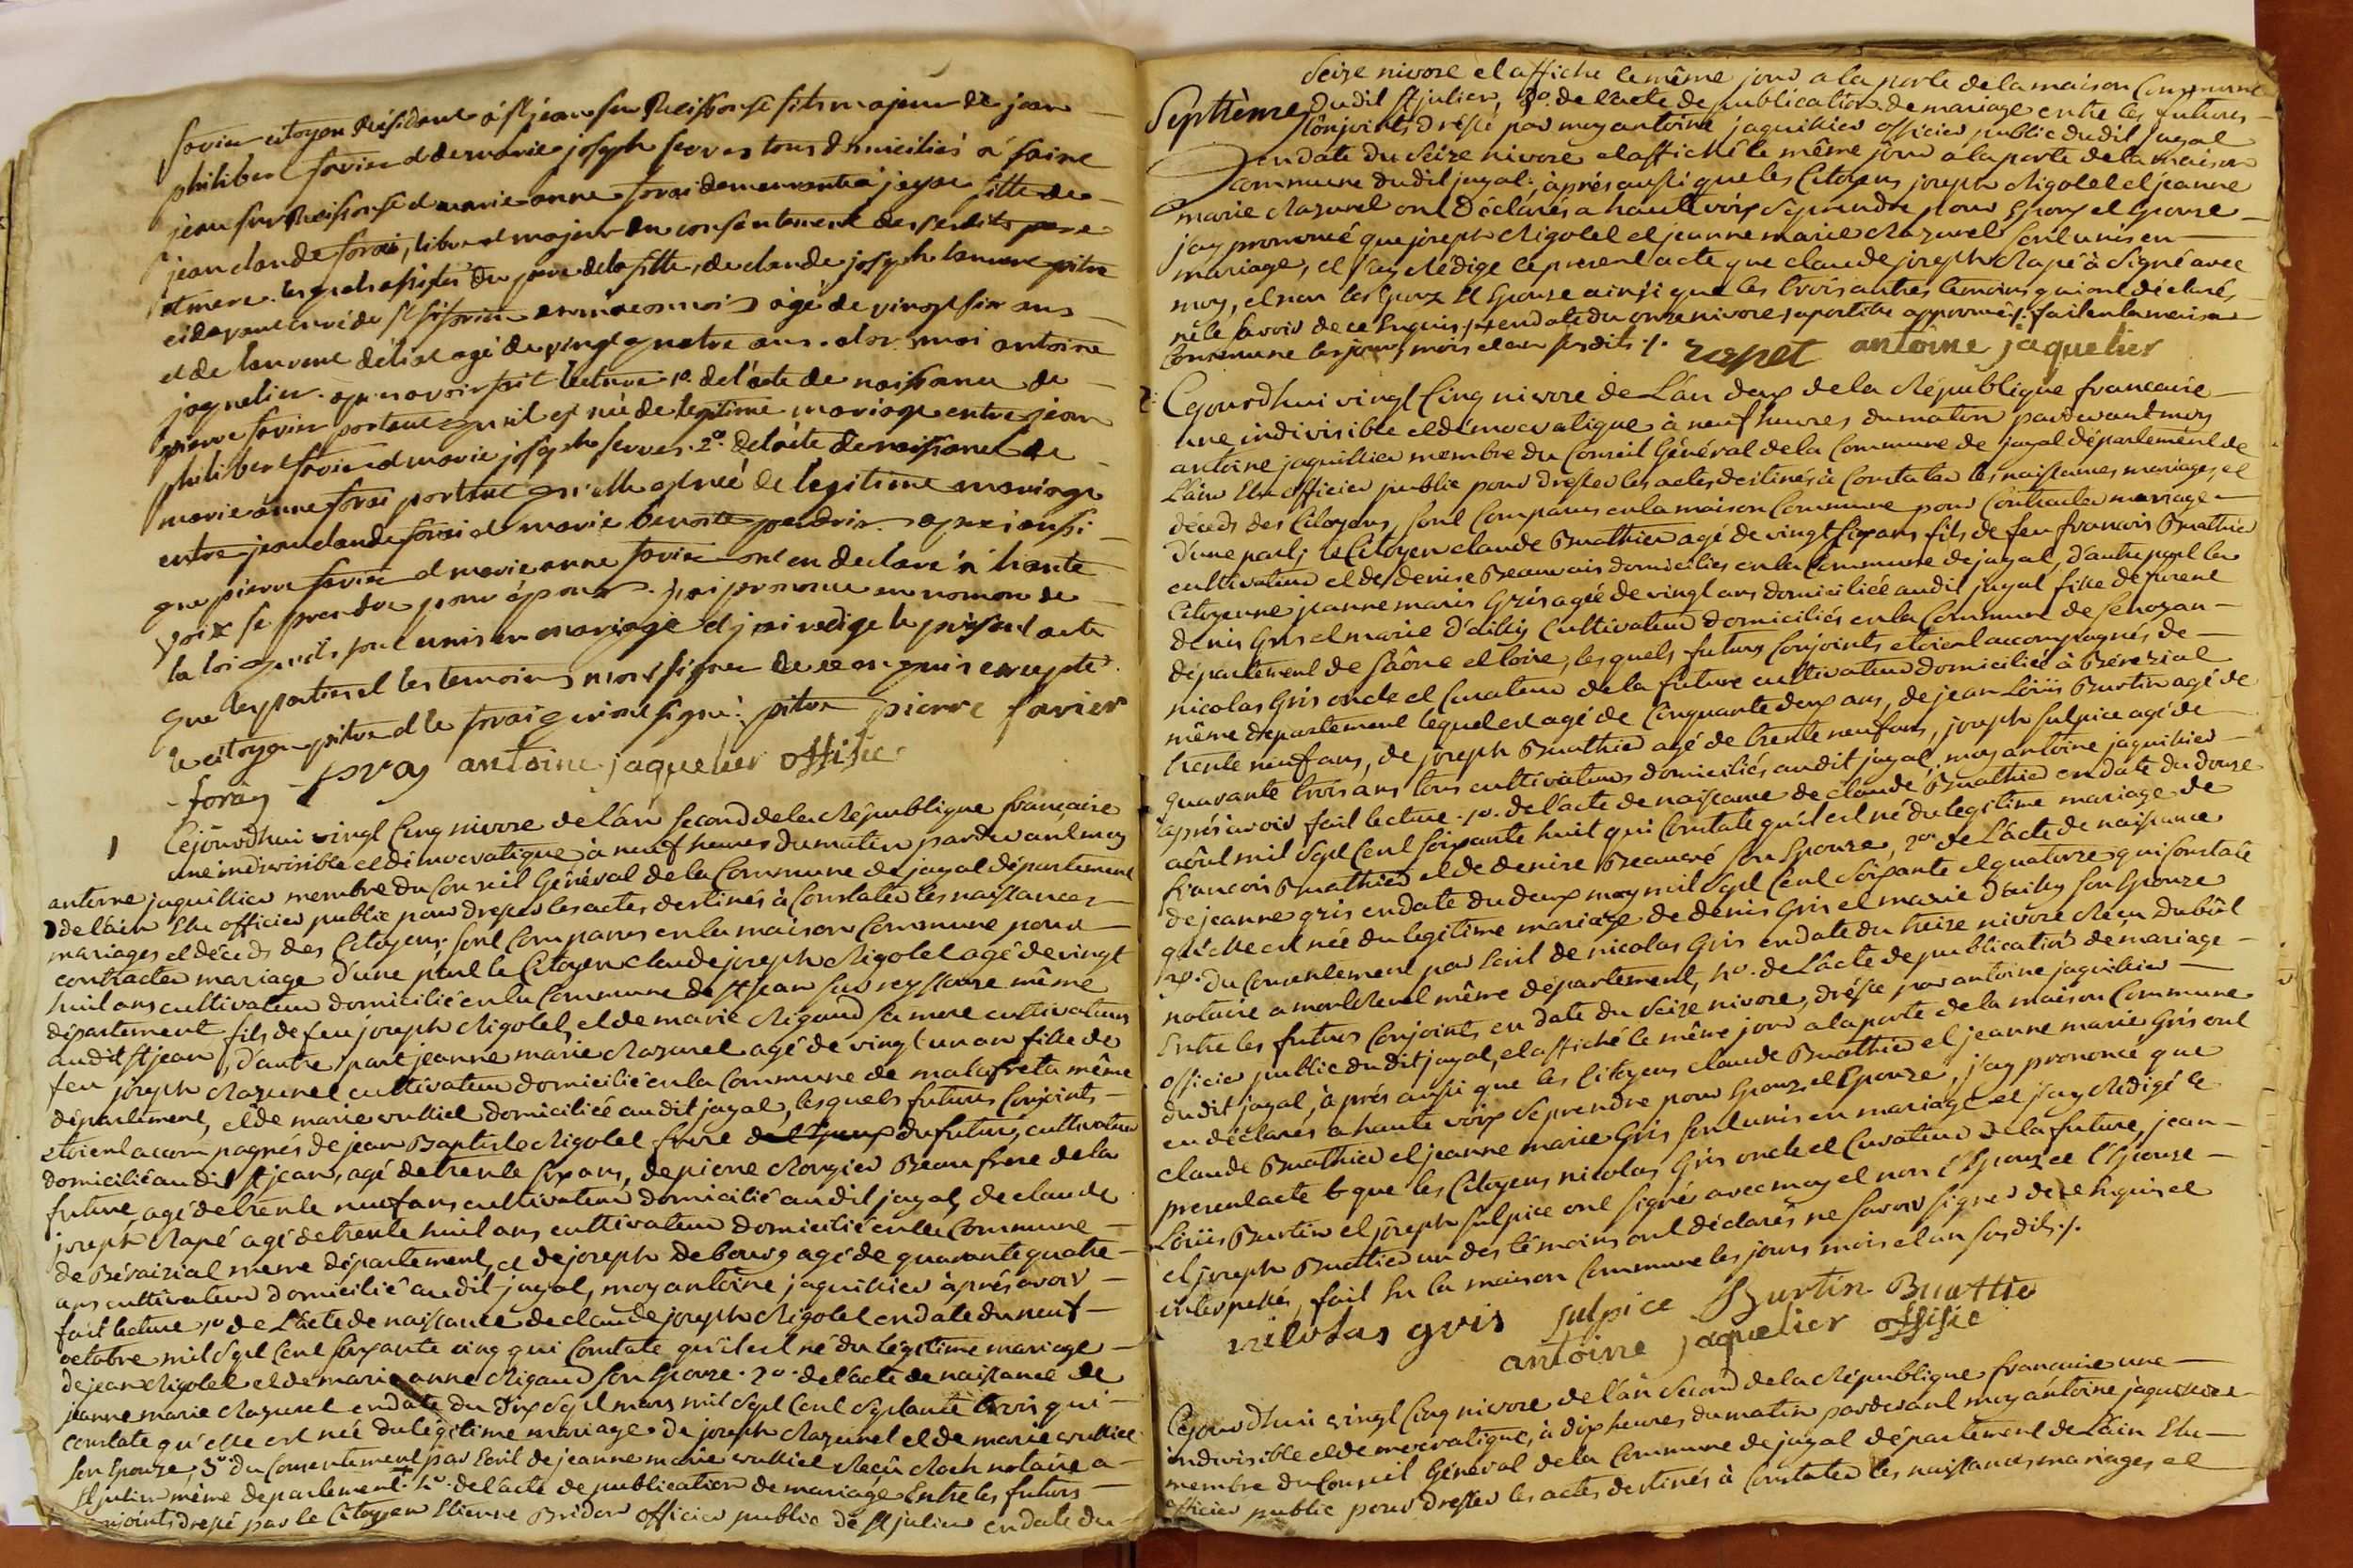 favier citoyen Résidant à st jean sur Reissouse fils majeur de jean
philibert favier et de marie joseph ferves tous domiciliés à saint
jean sur Reissouse et marie anne forai demeurante à jayat fille de
jean claude forai, libre et majeur du consentement de père
et mere. lesquels assistés du pere de la fille, de claude joseph pitre
cidevant curé de agé de vingt six ans
et de laurent agé de vingt quatre ans. et moi antoine
jaquelier. apres avoir fait lecture 1º. de l'acte de naissance de
pierre favier portant qu'il est née de legitime mariage entre jean
philibert favier et marie joseph ferves. 2º. de l'acte de naissance de
marie anne forai portant qu'elle est née de legitime mariage
entre jean claude forai et marie benoite apres aussi
que pierre favier et marie anne favier ont en declaré à haute
voix se prendre pour époux. j'ai prononcé au nom de
la loi qu'ils sont unis en mariage et j'ai redigé le présent acte
que les parties et les temoins n'ont signer de ce enquis excepté
le citoyen pitre et le forai qui ont signé. pitre pierre favier
foray foray antoine jaquelier offisie
1 Cejourdhui vingt Cinq nivose de l'an second de la République française
une indivisible et démocratique à neuf heures du matin pardevant moy
antoine jaquillier membre du Conseil Général de la Commune de jayal département
de l'ain Elu officier public pour dresser les actes destinés à Constater les naissances
mariages et décéds des Citoyens; sont Comparus en la maison Commune pour
contracter mariage d'une part le Citoyen claude joseph Rigolet agé de vingt
huit ans cultivateur domicilié en la Commune de st jean sur reyssouse même
département fils de feu joseph Rigolet, et de marie Rigaud sa mere cultivateurs
audit st jean, d'autre part jeanne marie Mazuret agé de vingt un an fille de
feu joseph Mazuret cultivateur domicilié en la Commune de malafreta même
département, et de marie vulliet domiciliée audit jayal, lesquels futurs Conjoints
etoient accompagnés de jean Baptiste Rigolet frere de l'Epoux du futur, cultivateur
domicilié audit st jean, agé de trente six ans, de pierre Beaufrere de la
future, agé de trente neuf ans cultivateur domicilié audit jayal, de claude
joseph Rapé agé de trente huit ans cultivateur domicilié en la Commune
de Bévaizial meme département, et de joseph debourg agé de quarante quatre
ans cultivateur domicilié audit jayal, moy antoine jaquillier après avoir
fait lecture 1º de L'acte de naissance de claude joseph Rigolet en date du neuf
octobre mil sept Cent soixante cinq qui Constate qu'il est né du légitime mariage
de jean Rigolet et de marie anne Rigaud son Epouze. 2º. de l'acte de naissance de
jeanne marie Mazuret en date du Dix sept mars mil sept Cent septante trois qui
constate qu'elle est née du légitime mariage de joseph Mazuret et de marie vulliet
son Epouze, 3º. du Consentement par Ecrit de jeanne marie vulliet Reçû Roch notaire a
st julien même departement. 4º. de l'acte de publication de mariage Entre les futurs
conjoints dressé par le Citoyen Etienne Bridon officier public de st julien en date du
seize nivose et affiché le même jour a la porte de la maison Commune
Septième dudit st julien, 5º. de l'acte de publication de mariage entre les futurs
Conjoints dressé par moy antoine jaquillier officier public dudit jayal
en date du seize nivose et affiché le même jour a la porte de la maison
commune dudit jayal: àprés aussi que les Citoyens joseph Rigolet et jeanne
marie Mazuret ont déclarés a haute voix se prendre pour Epoux et Epouse
j'ay prononcé que joseph Rigolet et jeanne marie Mazuret sont unis en
mariage, et j'ay Rédigé le present acte que claude joseph Rapé à signé avec
moy, et non les Epoux et Epouse ainsi que les trois autres temoins qui ont déclarés
ne le savoir de ce Enquis en date du onze nivose apostille approuvée fait en la maison
Commune les jours, mois et an susdits ./. rapet antoine jaquelier
2: Cejourdhui vingt Cinq nivose de L'an deux de la République francaise
une indivisible et démocratique à neuf heures du matin pardevant moy
antoine jaquillier membre du Conseil Général de la Commune de jayal département de
L'ain Elu officier public pour dresser les actes destinés à Constater les naissances mariages, et
décéds des Citoyens, sont Comparus en la maison Commune pour Contracter mariage
d'une part; le Citoyen claude Buathier agé de vingt six ans fils de feu francois Buathier
cultivateur et de denise Beauvais domicilies en la Commune de jayal, d'autre part la
Citoyenne jeanne marie Gris agée de vingt ans domiciliée audit jayal fille de furent
denis Gris et marie d'ailly Cultivateur domiciliés en la Commune de Senozan
département de Saône et loire, lesquels futurs Conjoints etoient accompagnés de
nicolas Gris oncle et Curateur de la future cultivateur domicilié à Bérezial
même departement lequel est agé de Cinquante deux ans, de jean Loüis Burtin agé de
trente neuf ans, de joseph Buathier agé de trente neuf ans, joseph sulpice agé de
quarante trois ans tous cultivateurs domiciliés audit jayal, moy antoine jaquillier
après avoir fait lecture. 1º. de l'acte de naissance de claude Buathier en date du douze
aôut mil sept Cent soixante huit qui Constate qu'il est né du legitime mariage de
francois Buathier et de denise Beauvé son Epouze, 2º. de L'acte de naissance
de jeanne gris en date du deux may mil sept Cent soixante et quatorze qui Constate
qu'elle est née du legitime mariage de denis Gris et marie d'ailly son Epouze
3º. du Consentement par Ecrit de nicolas Gris en date du treize nivose Reçu Dubôt
notaire a montrevel même département, 4º. de L'acte de publication de mariage
Entre les futurs Conjoints en date du seize nivose, dréssé par antoine jaquillier
officier public dudit jayal, et affiché le même jour a la porte de la maison Commune
dudit jayal, àprés aussi que les Citoyens claude Buathier et jeanne marie Gris ont
en déclarés a haute voix se prendre pour Epoux et Epouze, j'ay prononcé que
claude Buathier et jeanne marie Gris sont unis en mariage et j'ay Rédigé le
present acte que les Citoyens nicolas Gris oncle et Curateur de la future, jean
Loüis Burtin et joseph sulpice ont signés avec moy et non l'Epoux et l'Epouse
et joseph Buathier un des témoins ont déclarés ne savoir signer de ce Enquis et
interpellés, fait En la maison Commune les jours mois et an susdits ./.
nicolas gris sulpice Burtin Buattie
antoine jaquelier offisie
Cejourdhui vingt Cinq nivose de l'an second de la République francaise une
indivisible et démocratique, à dix heures du matin pardevant moy antoine jaquillier
membre du Conseil Général de la Commune de jayal département de L'ain Elu
officier public pour dresser les actes destinés à Constater les naissances mariages et